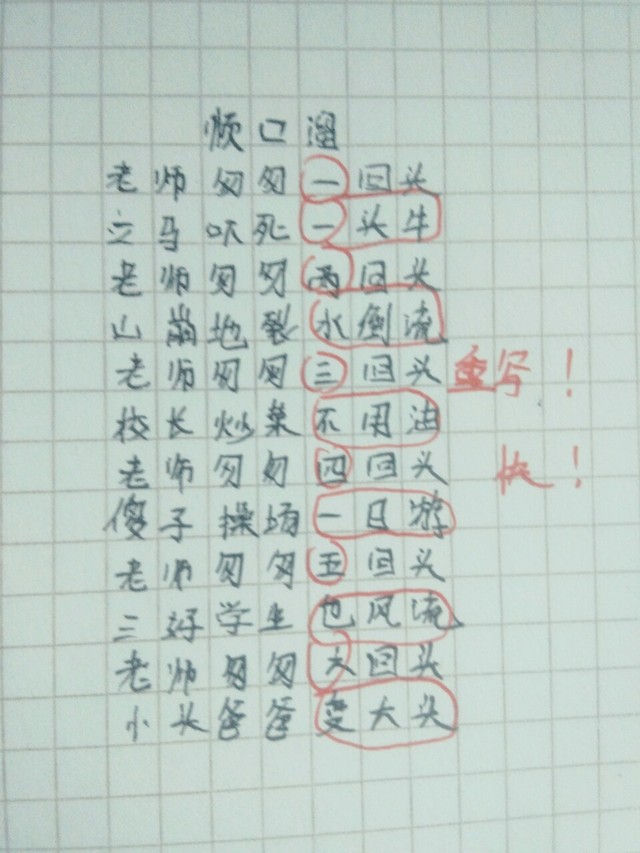 顺口溜
老师匆匆一回头
立马吓死一头牛
老师匆匆两回头
山崩地裂水倒流
老师匆匆三回头
重写！
校长炒菜不用油
老师匆匆四回头
快！
傻子操场一日游
老师匆匆五回头
三好学生也风流
老师匆匆六回头
小头爸爸变大头